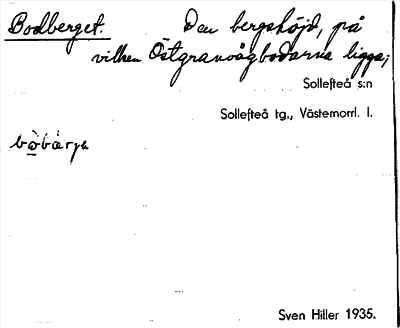 Bodberget. Den bergshöjd, på
vilken Östgranvågbodarna ligga;
Sollefteå s:n
Sollefteå tg., Västernorrl. l.
Sven Hiller 1935.